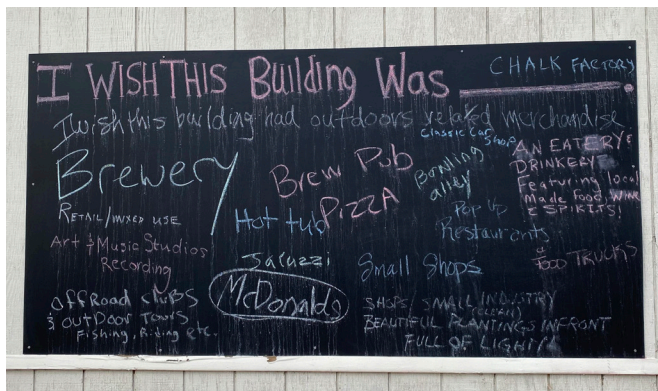 I WISH THIS Building Was
CHALK FACTORY
I wish this building had outdoors related merchandise
Classic Car Shop
Brewery
Brew Pub
PIZZA
Bowling alley
AN EATERY &
DRINKERY
Featuring local
Made food, WINE
& SPIRITS!
RETAIL/MIXED USE
Hot tub
Pop Up
Restaurants
Art & Music Studios
Recording
Jacuzzi
Small Shops
& FOOD TRUCKS
McDonalds
OffRoad clubs
& OUTDOOR TOURS
Fishing, Riding etc.
SHOPS/SMALL INDUSTRY
(CLEAN)
BEAUTIFUL PLANTINGS IN FRONT
FULL OF LIGHT